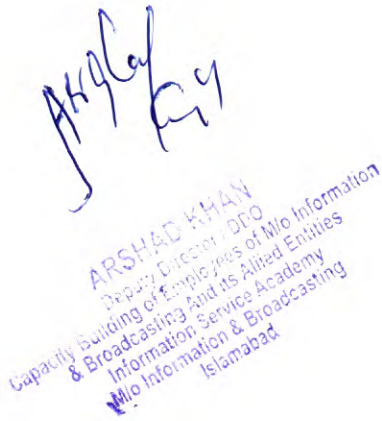 ARSHAD KHAN
Deputy Director / DDO
Capacity Building of Employees of M/o Information
& Broadcasting And its Allied Entities
Information Service Academy
M/o Information & Broadcasting
Islamabad